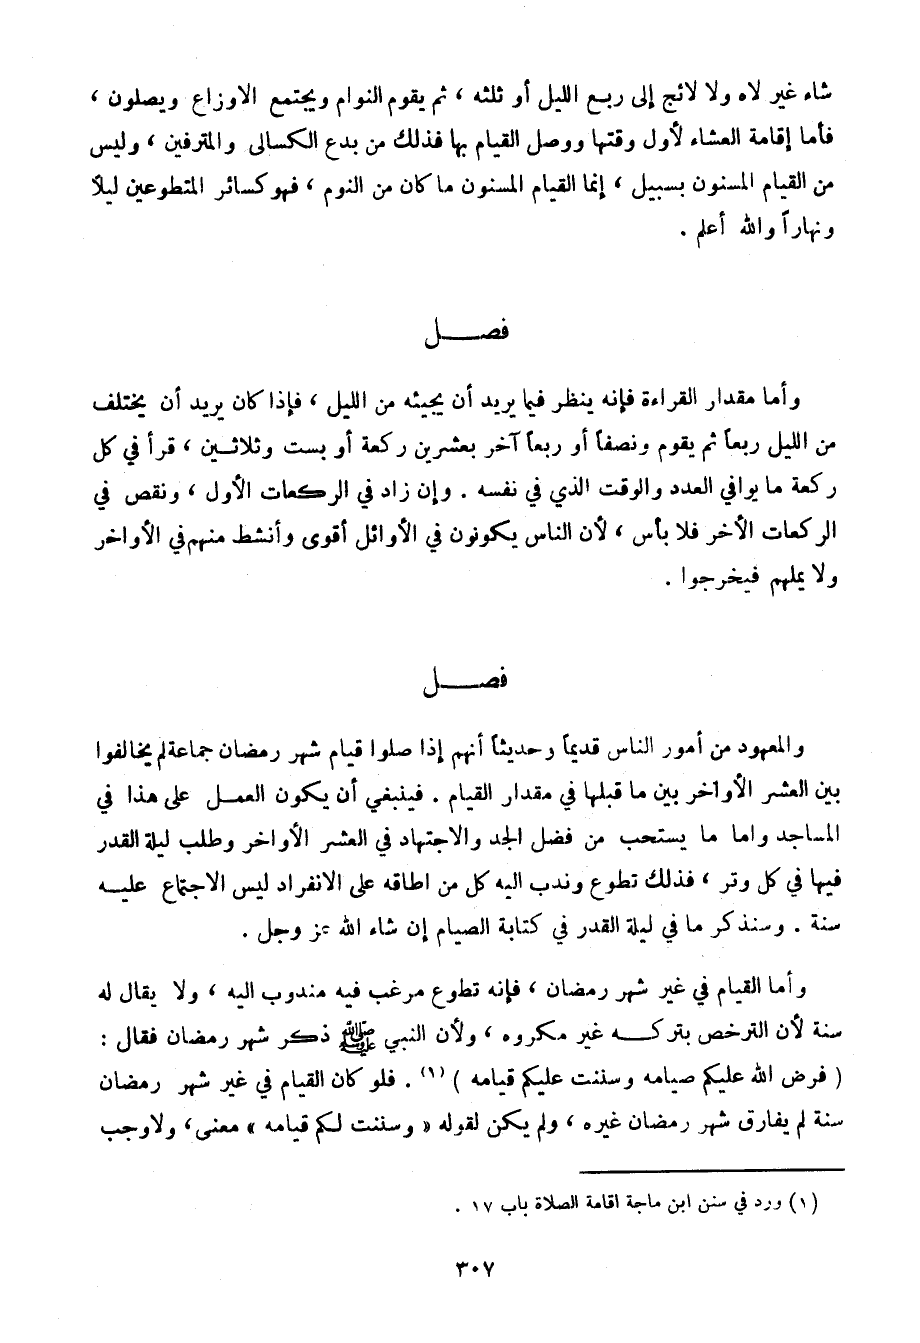 شاء غير لاه ولا لائج إلى ربع الليل أو ثلثه ، ثم يقوم النوام ويجتمع الاوزاع ويصلون ،
فأما إقامة العشاء لأول وقتها ووصل القيام بها فذلك من بدع الكسالى والمترفين ، وليس
من القيام المسنون بسبيل ، إنما القيام المسنون ما كان من النوم ، فهو كسائر المتطوعين ليلاً
ونهاراً والله أعلم .
فصـــل
وأما مقدار القراءة فإنه ينظر فيما يريد أن يجيئه من الليل ، فإذا كان يريد أن يختلف
من الليل ربعاً ثم يقوم ونصفاً أو ربعاً آخر بعشرين ركعة أو بست وثلاثين ، قرأ في كل
ركعة ما يوافي العدد والوقت الذي في نفسه . وإن زاد في الركعات الأول ، ونقص في
الركعات الأخر فلا بأس ، لأن الناس يكونون في الأوائل أقوى وأنشط منهم في الأواخر
ولا يملهم فيخرجوا .
فصـــل
والمعهود من أمور الناس قديماً وحديثاً أنهم إذا صلوا قيام شهر رمضان جماعة لم يخالفوا
بين العشر الأواخر بين ما قبلها في مقدار القيام . فينبغي أن يكون العمل على هذا في
المساجد واما ما يستحب من فضل الجد والاجتهاد في العشر الأواخر وطلب ليلة القدر
فيها في كل وتر ، فذلك تطوع وندب اليه كل من اطاقه على الانفراد ليس الاجتماع عليه
سنة . وسنذكر ما في ليلة القدر في كتابة الصيام إن شاء الله عز وجل .
وأما القيام في غير شهر رمضان ، فإنه تطوع مرغب فيه مندوب اليه ، ولا يقال له
سنة لأن الترخص بتركه غير مكروه ، ولأن النبي ﷺ ذكر شهر رمضان فقال :
( فرض الله عليكم صيامه وسننت عليكم قيامه ) (١) . فلو كان القيام في غير شهر رمضان
سنة لم يفارق شهر رمضان غيره ، ولم يكن لقوله « وسننت لكم قيامه » معنى ، ولاوجب
(١) ورد في سنن ابن ماجة اقامة الصلاة باب ١٧ .
٣٠٧